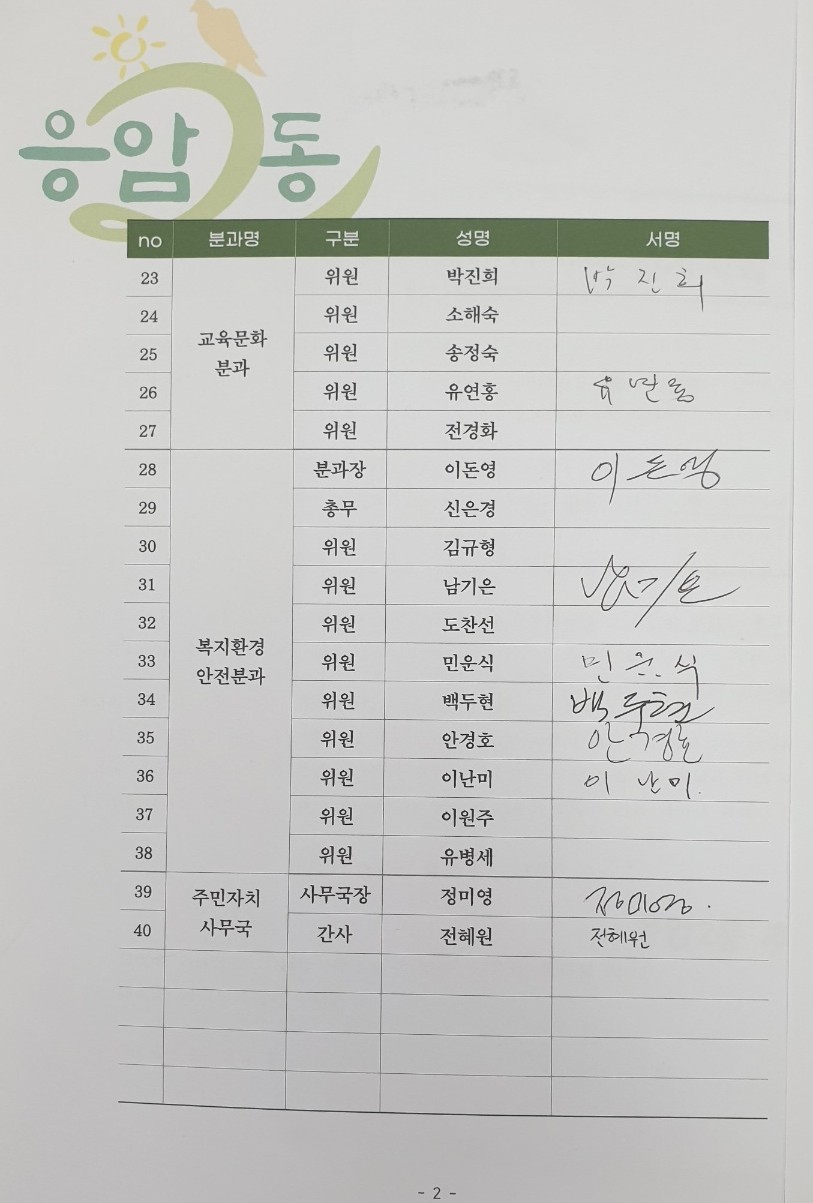 응암2동
no 분과명 구분 성명 서명
23 위원 박진희 박진희
24 위원 소해숙
교육문화
분과
25 위원 송정숙
26 위원 유연홍
27 위원 전경화
28 분과장 이돈영 이돈영
29 총무 신은경
30 위원 김규형
31 위원 남기은 남기은
32 위원 도찬선
복지환경
안전분과
33 위원 민운식 민운식
34 위원 백두현 백두현
35 위원 안경호 안경호
36 위원 이난미 이난미.
37 위원 이원주
38 위원 유병세
주민자치
사무국
39 사무국장 정미영 정미영.
40 간사 전혜원 전혜원
- 2 -